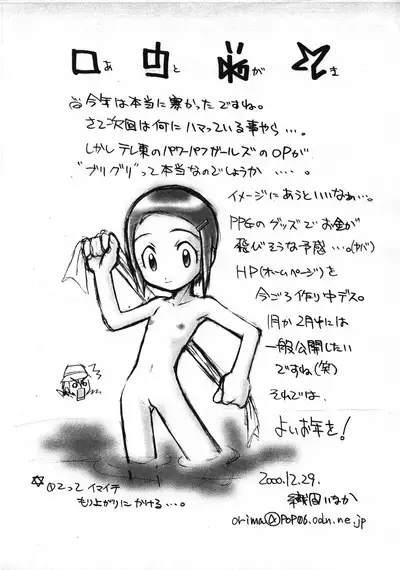 あとがき
今年は本当に寒かったですね。
さて次回は何にハマっている事やら…。
しかしテレ東のパワーパフガールズのOPが
"ブリグリ"って本当なのでしょうか……。
イメージにあうといいなぁ…。
PPGのグッズでお金が
飛びそうな予感…。(ヤバ)
HP(ホームページ)を
今ごろ作り中デス。
1月か2月中には
一般公開したい
ですね(笑)
それでは、
よいお年を!
2000.12.29.
いなか
orima@pop06.odn.ne.jp
①②って イマイチ
もり上がりにかける…。